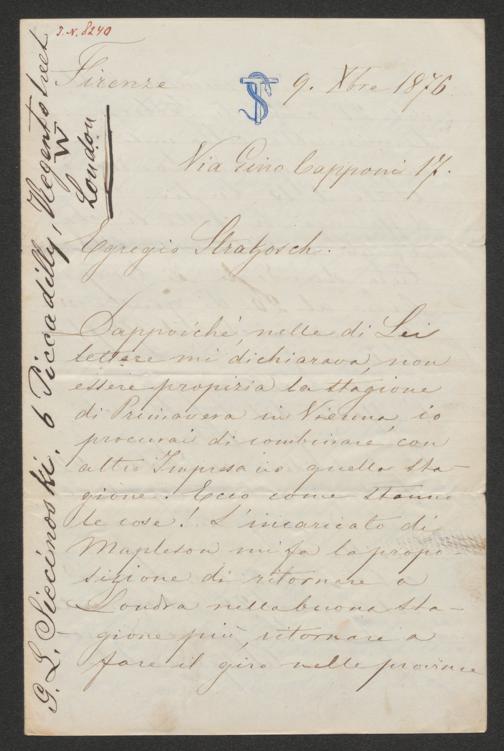 J. N. 8240
Firenze 9. Xbre 1876
Via Gino Capponi 17.
Egregio Stratzosch.
Dappoichè, nelle di Lei
lettere mi dichiarava, non
essere propizia la stagione
di Primavera in Vienna, io
procurai di combinare con
altra Impresa in quella sta-
gione. Ecco come stanno
le cose! L'incaricato di
Mapleson mi fa la propo-
sizione di ritornare a
Londra nella buona sta-
gione più, ritornare a
fare il giro nelle province
G. L. Siecinoski. 6 Piccadilly, Regent street
W
London